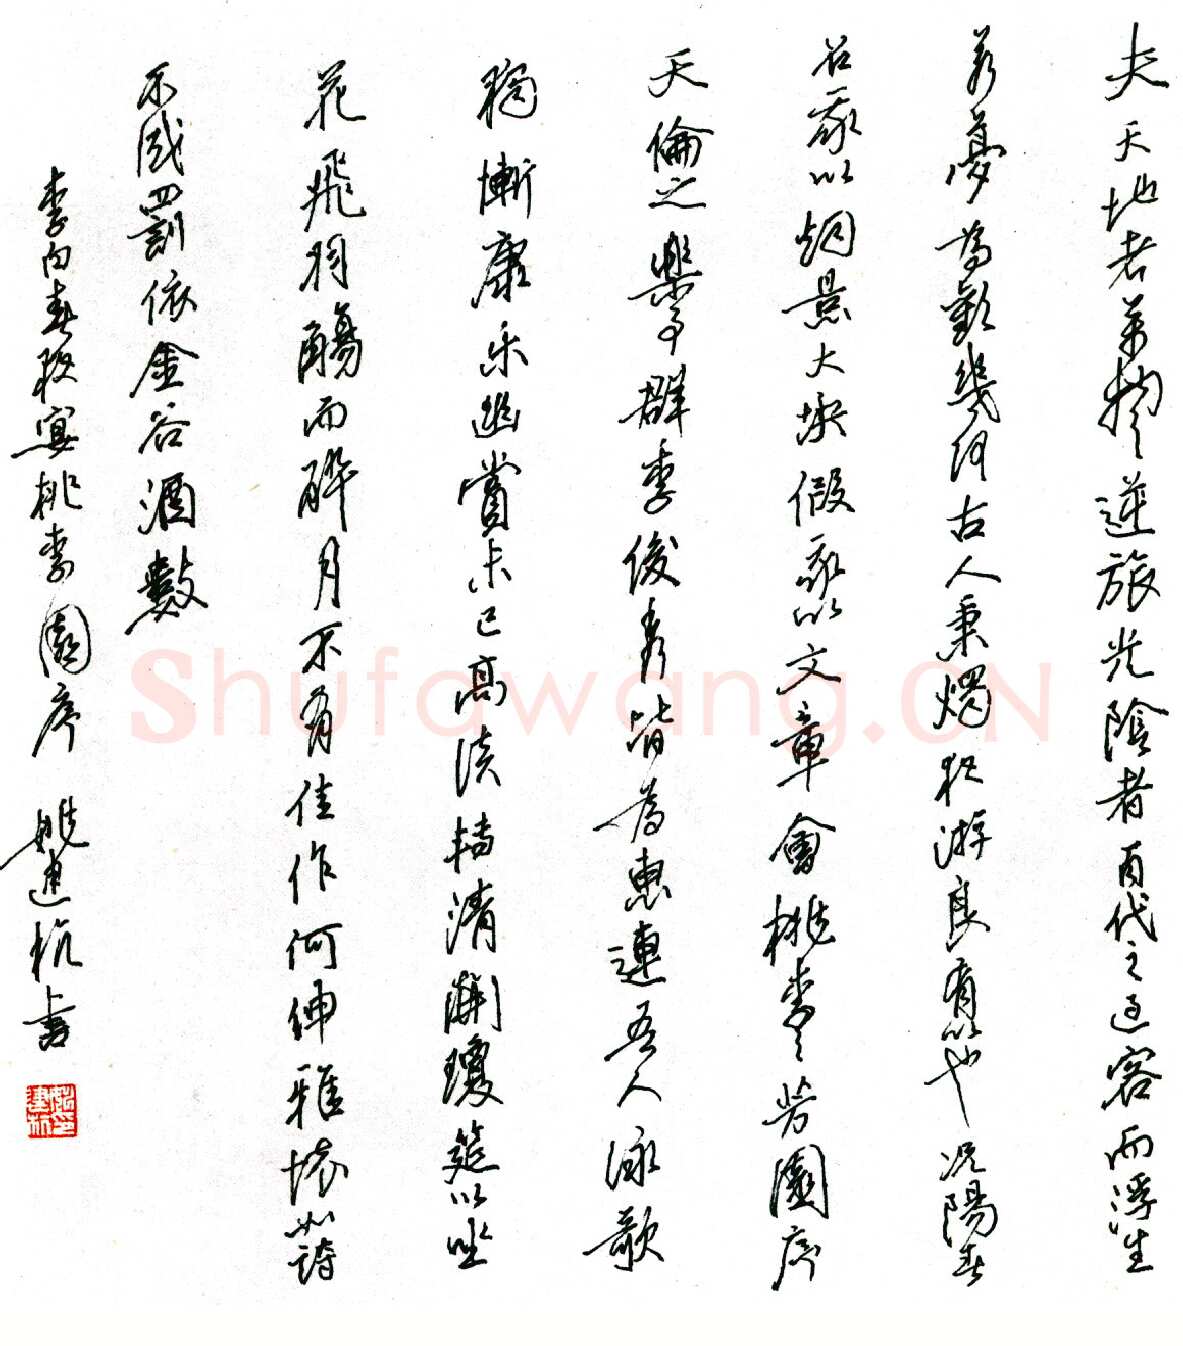 夫天地者萬物之逆旅光陰者百代之過客而浮生
若夢為歡幾何古人秉燭夜游良有以也况陽春
召我以烟景大塊假我以文章會桃李之芳園序
天倫之樂事群季俊秀皆為惠連吾人詠歌
獨慚康乐幽賞未已高談轉清開瓊筵以坐
花飛羽觴而醉月不有佳作何伸雅懷如詩
不成罰依金谷酒數
李白春夜宴桃李園序 姚建杭書
Shufawang.CN